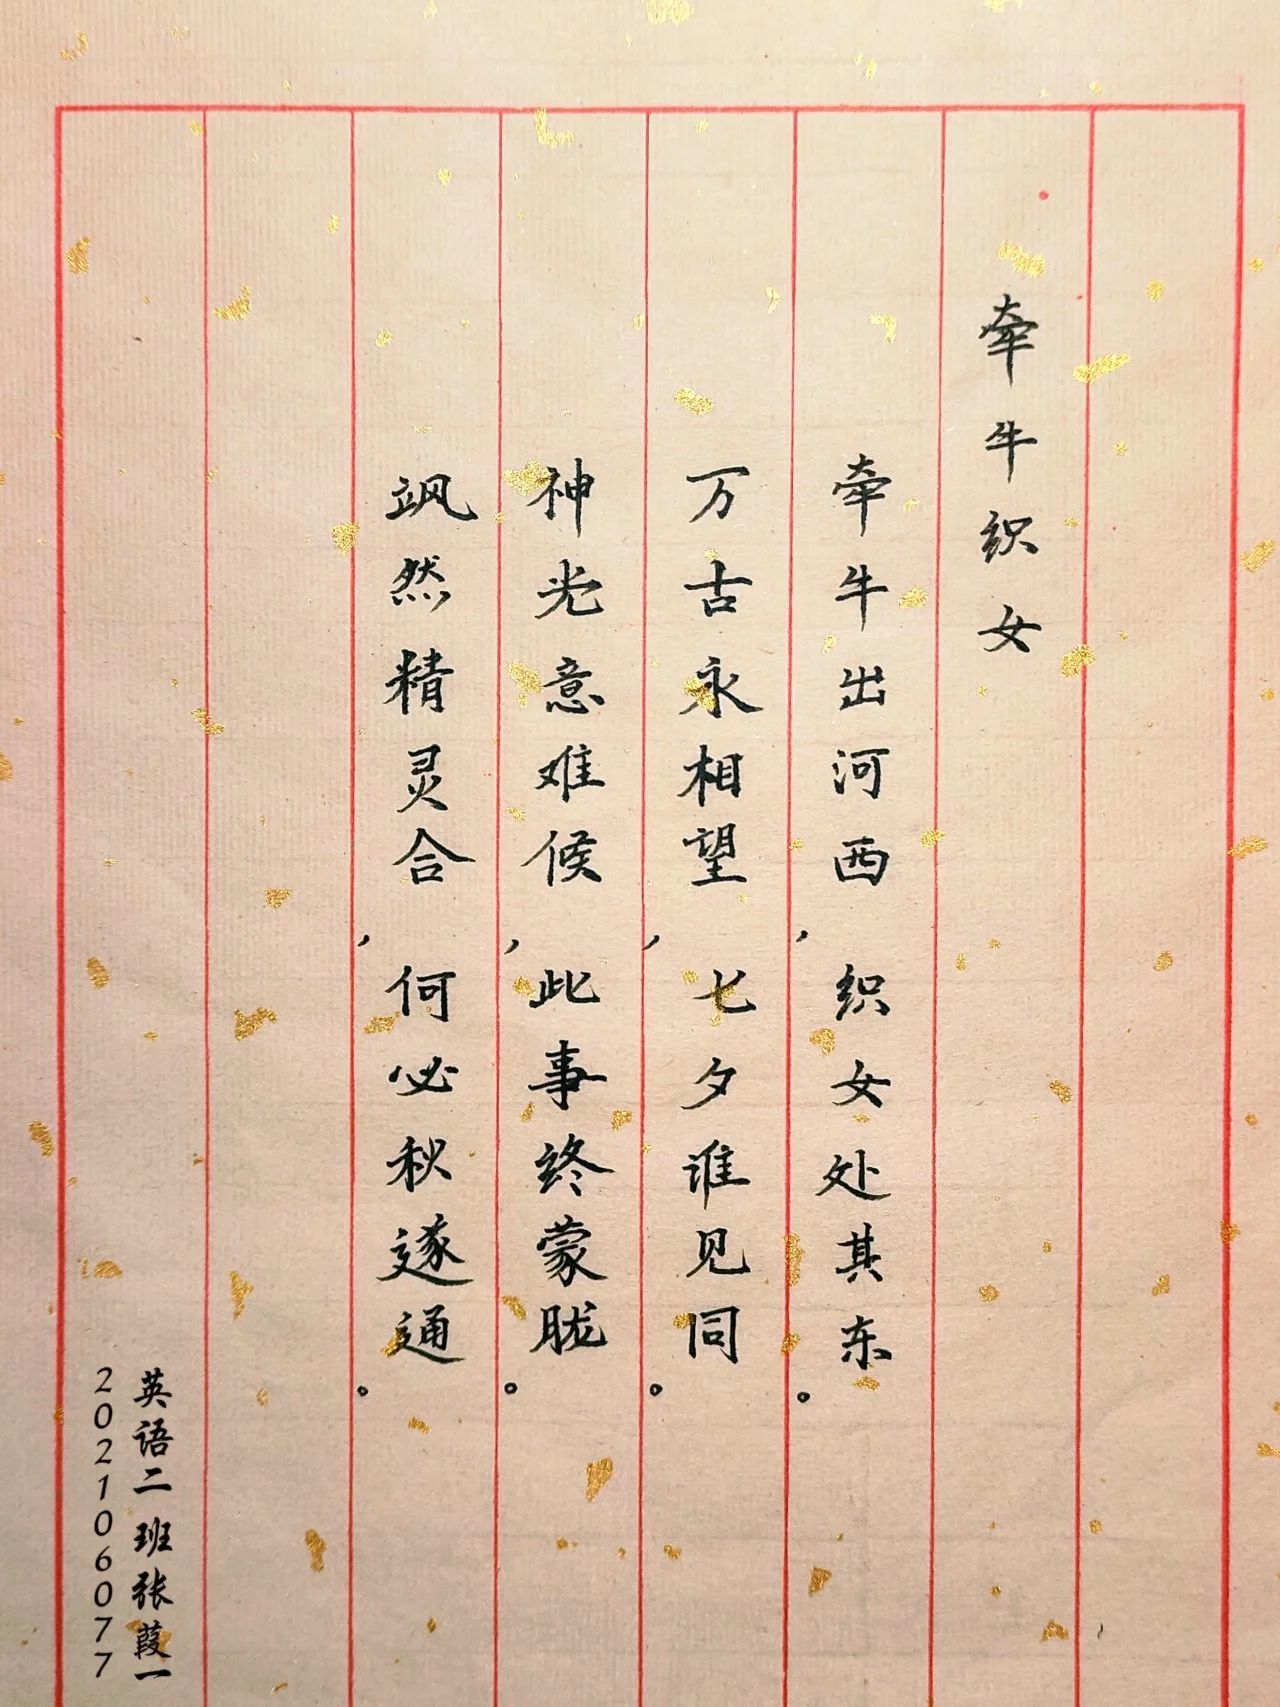 牵牛织女
牵牛出河西，织女处其东。
万古永相望，七夕谁见同。
神光意难候，此事终蒙胧。
飒然精灵合，何必秋遂通。
英语二班张葭一
202106077